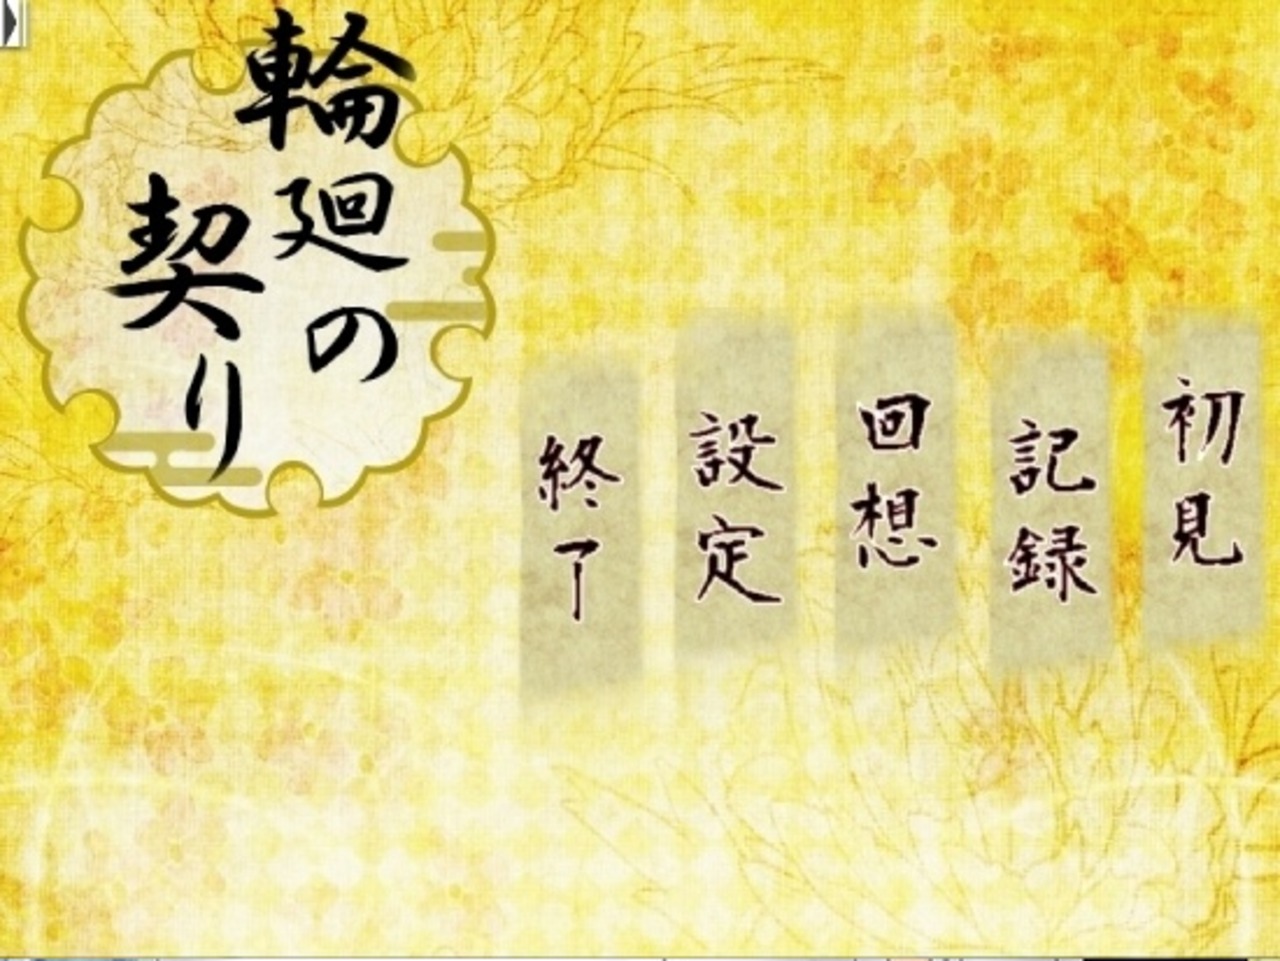 輪廻の
契り
初見
記録
回想
設定
終了